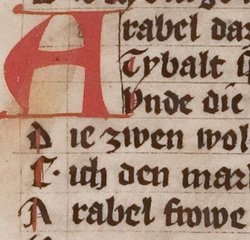 Arabel daz
Tybalt
Vnde die
Die zwen wol
Sich den mar
Arabel frowe